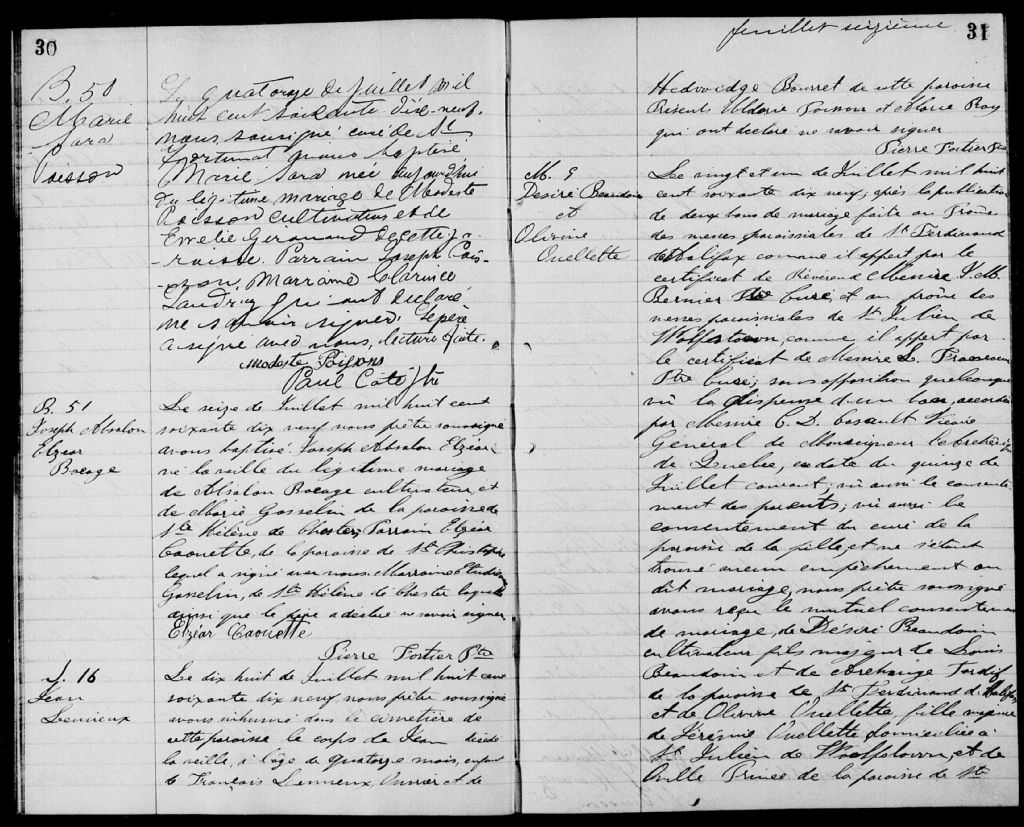 30
B. 50
Marie
Sara
Poisson
Le quatorze de juillet mil
huit cent soixante dix-neuf,
nous, soussigné curé de St
Fortunat avons baptisé
Marie Sara née aujourd'hui
du légitime mariage de Modeste
Poisson cultivateur et de
Emelie Girouard de cette pa-
-roisse. Parrain Joseph Pois-
-son, Marraine Clarince
Landry qui ont déclaré
ne savoir signer. Le père
a signé avec nous, lecture faite.
Modeste Poisson
Paul Coté Ptre
B. 51
Joseph Absalon
Elzear
Bocage
Le seize de Juillet mil huit cent
soixante dix neuf nous prêtre soussigné
avons baptisé Joseph Absalon Elzéar,
né la veille du légitime mariage
de Absalon Bocage cultivateur, et
de Marie Gosselin de la paroisse de
Ste Hélène de Chester; Parrain Elzéar
Caouette, de la paroisse de St Christophe
lequel a signé avec nous. Marraine
Gosselin, de Ste Hélène de Chester laquelle
ainsi que le père a déclaré ne savoir signer
Elzéar Caouette
Pierre Fortier Ptre
S. 16
Jean
Lemieux
Le dix huit de Juillet mil huit cent
soixante dix neuf nous prêtre soussigné
avons inhumé dans le cimetière de
cette paroisse le corps de Jean décédé
la veille, à l'age de quatorze mois, enfant
de François Lemieux, ouvrier et de
feuillet seizième
31
Hedwidge Bourret de cette paroisse
Présents Uldoric Poisson et Marie Roy
qui ont déclaré ne savoir signer
Pierre Fortier Ptre
M. 9
Désiré Beaudoin
et
Olivine
Ouellette
Le vingt et un de Juillet mil huit
cent soixante dix neuf; après la publication
de deux bans de mariage faite au Prône
des messes paroissiales de St Ferdinand
d'Halifax comme il appert par le
certificat de Révérend Messire J. M.
Bernier Ptre Curé, et au prône des
messes paroissiales de St Julien de
Wolfstown, comme il appert par
le certificat de Messire L.
Ptre Curé; sans opposition quelconque
vû la dispense d'un ban, accordée
par Messire C. D. Cazeault Vicaire
Général de Monseigneur l'Archevêque
de Quebec, en date du quinze de
Juillet courant; vû aussi le consente-
ment des parents; vû aussi le
consentement du curé de la
paroisse de la fille, et ne s'étant
trouvé aucun empêchement au
dit mariage, nous prêtre soussigné
avons reçu le mutuel consentement
de mariage, de Désiré Beaudoin
cultivateur fils majeur de Louis
Beaudoin et de Archange Tardif
de la paroisse de St Ferdinand d'Halifax,
et de Olivine Ouellette, fille mineure
de Jérémie Ouellette domiciliée à
St Julien de Wolfstown, et de
Prince de la paroisse de Ste